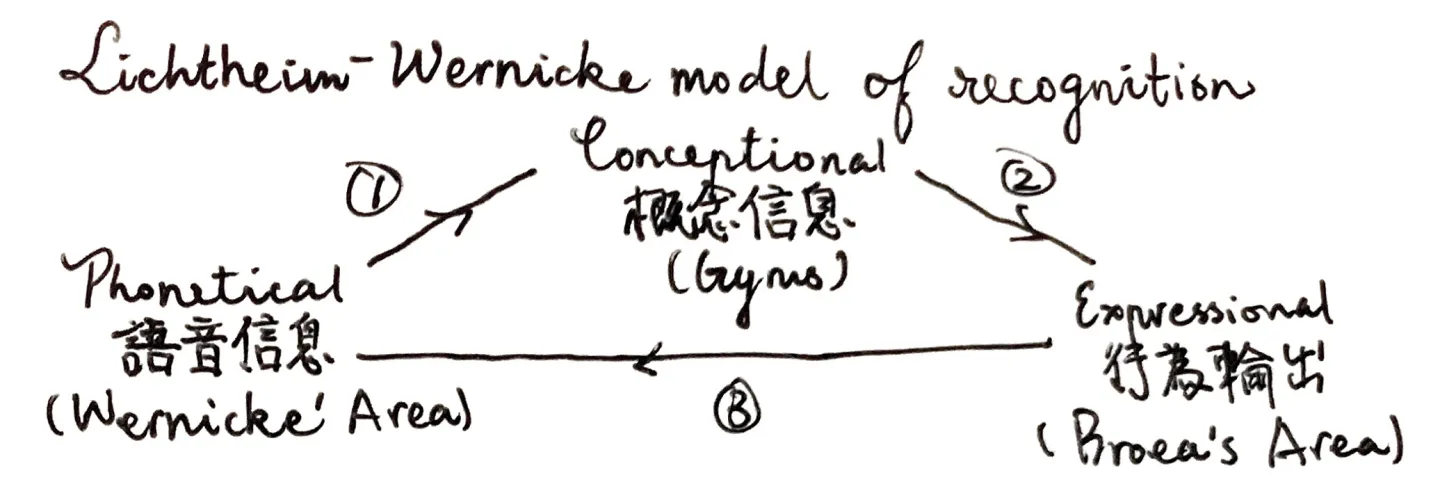 Lichtheim-Wernicke model of recognition
①
Conceptional
概念信息
(Gyrus)
②
Phonetical
語音信息
(Wernicke' Area)
③
Expressional
行為輸出
(Broca's Area)